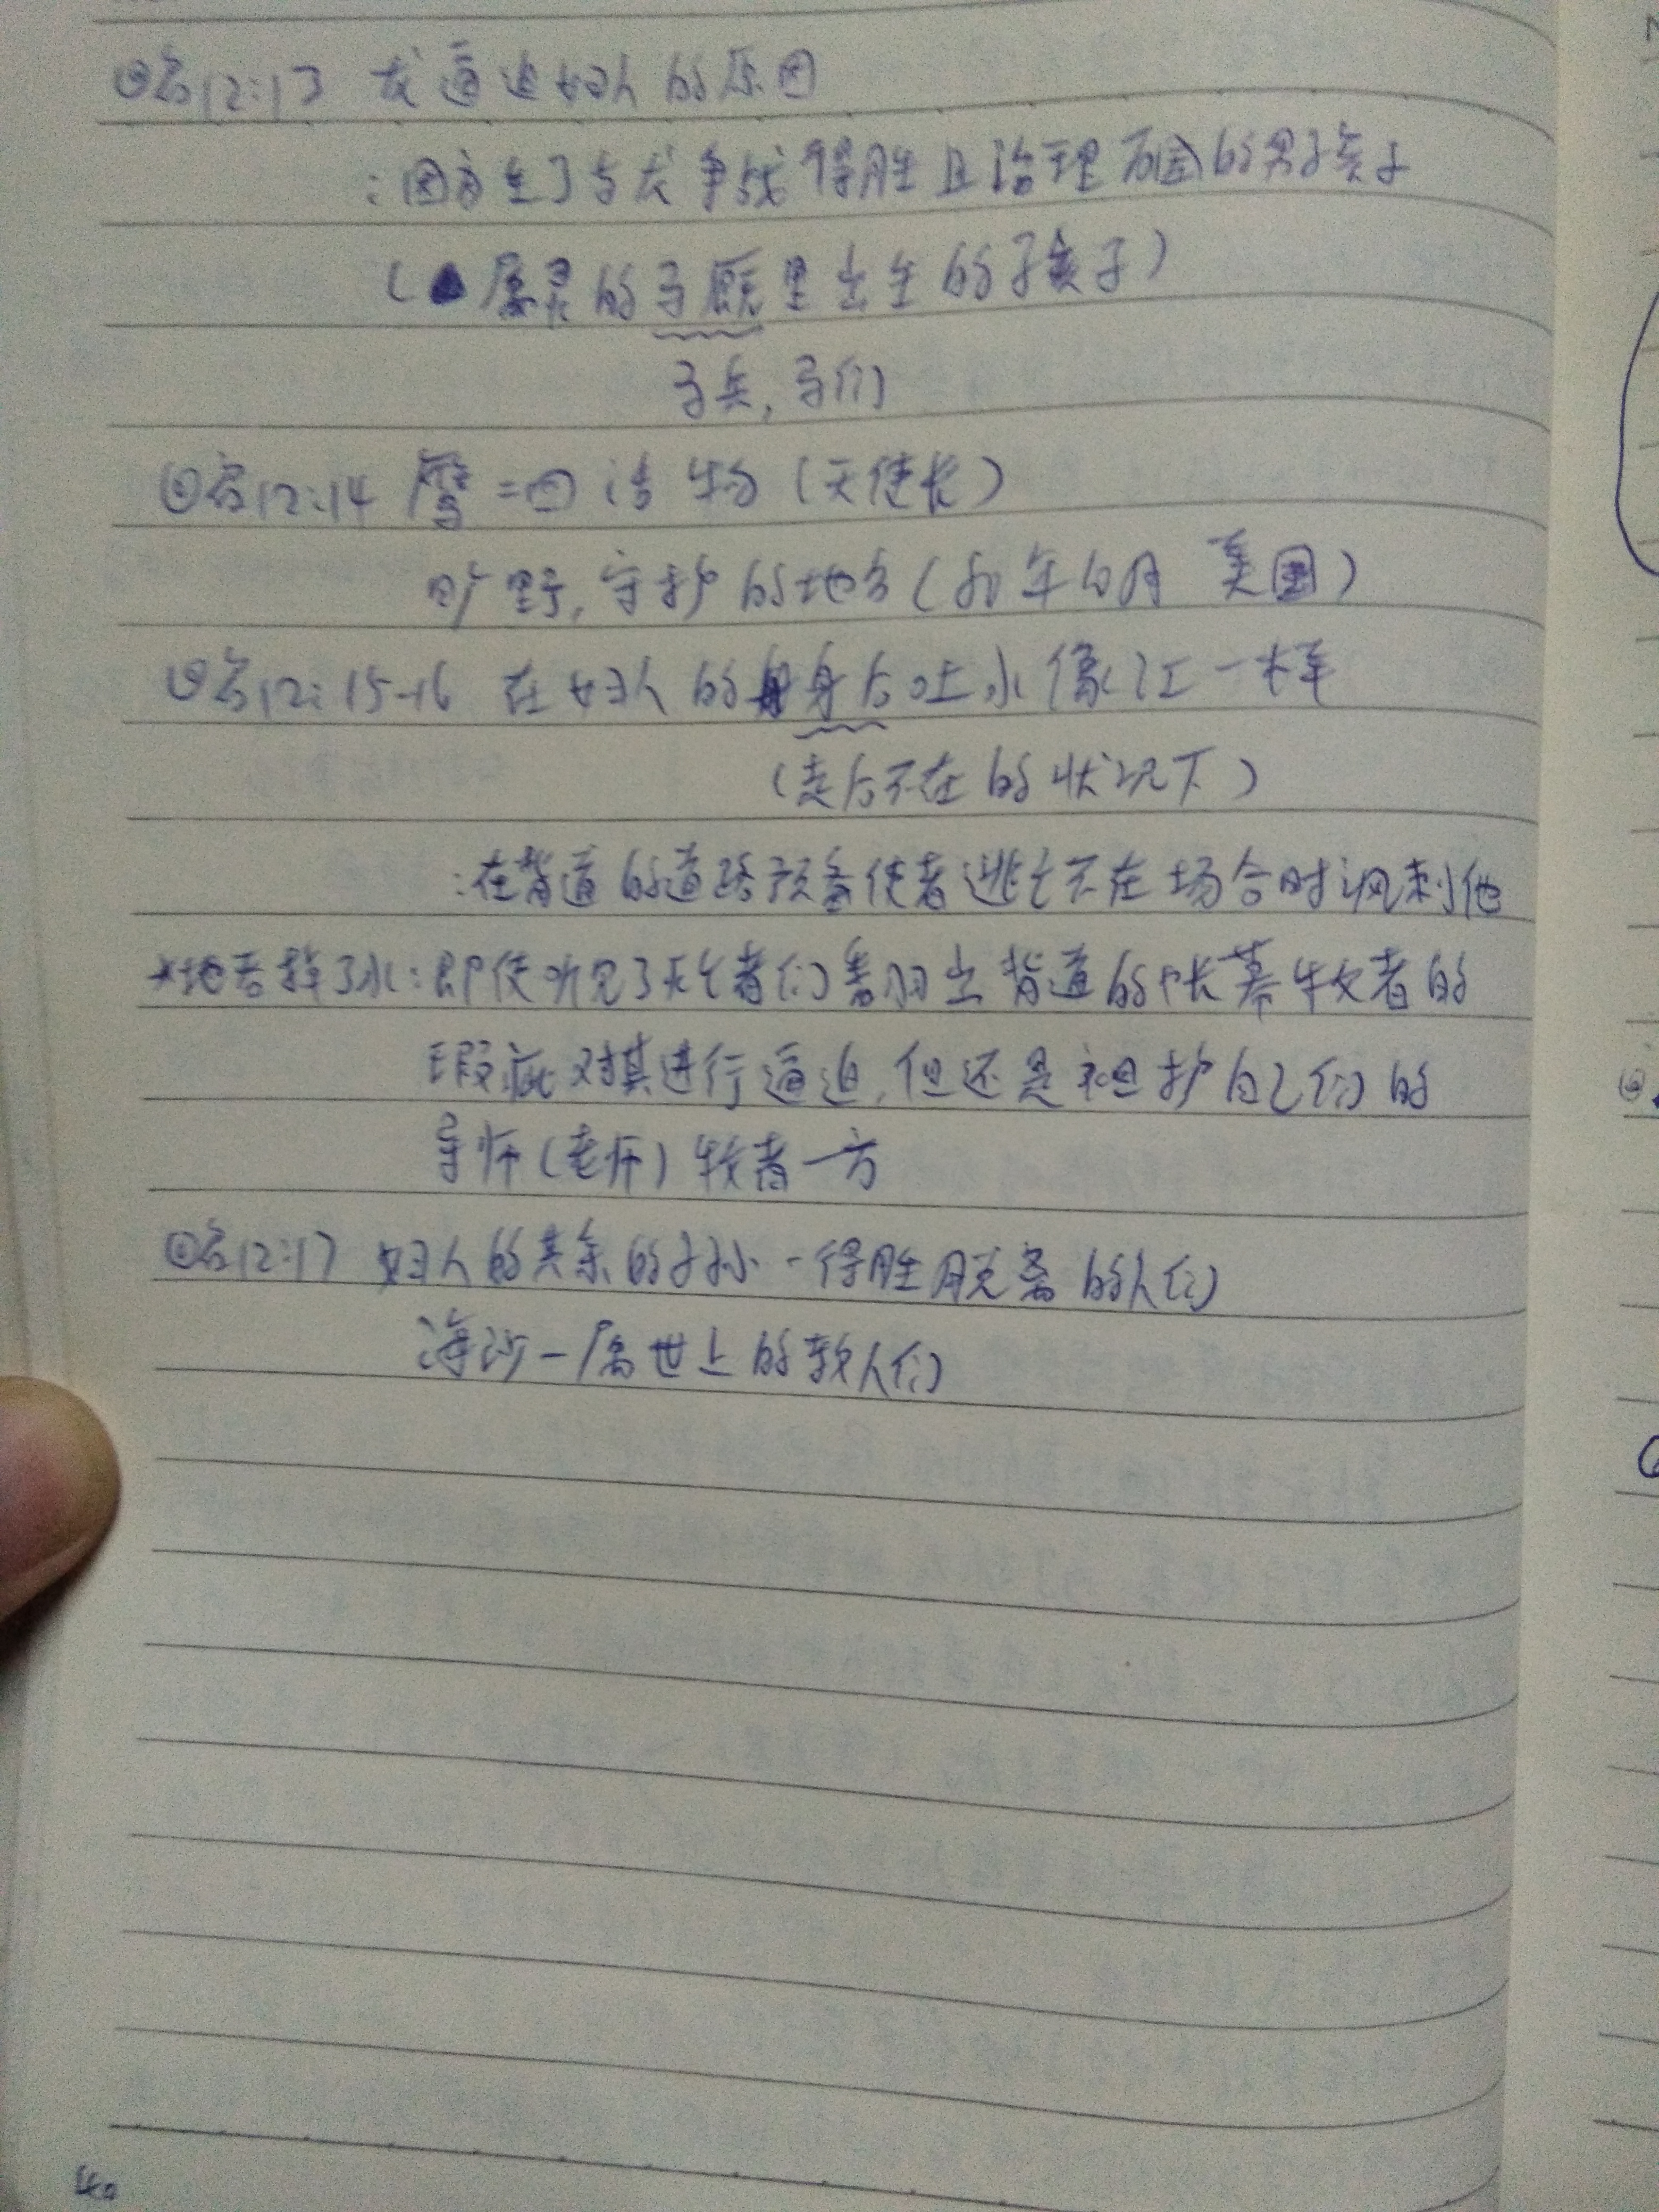 ⊙启12:13 龙逼迫妇人的原因
:因为生了与龙争战得胜且治理万国的男孩子
(属灵的子 里出生的孩子)
子兵,子们
⊙启12:14 鹰=四活物(天使长)
旷野,守护的地方(80年10月 美国)
⊙启12:15-16 在妇人的身后吐水像江一样
(走后不在的状况下)
:在背道的道路预备使者逃亡不在场合时讽刺他
*地吞掉了水:即使听见了 者们 出背道的帐幕牧者的
瑕疵对其进行逼迫,但还是袒护自己们的
导师(老师)牧者一方
⊙启12:17 妇人的其余的子孙-得胜脱离的人们
海沙-属世上的 人们
40